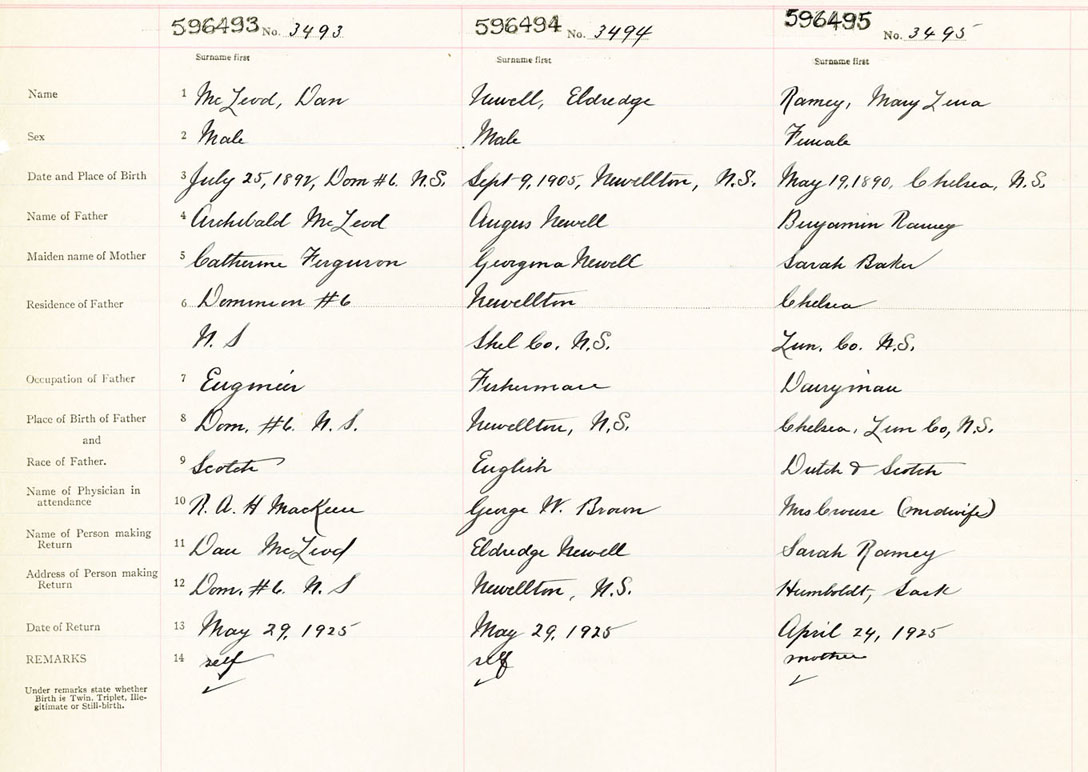 596493 No. 3493 596494 No. 3494 596495 No. 3495
Surname first Surname first Surname first
Name 1 McLeod, Dan Newell, Eldredge Ramey, Mary Lena
Sex 2 Male Male Female
Date and Place of Birth 3 July 25, 1892, Dom #6. N.S. Sept 9, 1905, Newellton, N.S. May 19, 1890, Chelsea, N.S.
Name of Father 4 Archibald McLeod Angus Newell Benjamin Ramey
Maiden name of Mother 5 Catherine Ferguson Georgina Newell Sarah Baker
Residence of Father 6 Dominion #6 Newellton Chelsea
N. S Shel Co. N.S. Lun. Co. N.S.
Occupation of Father 7 Engineer Fisherman Dairyman
Place of Birth of Father 8 Dom. #6. N. S. Newellton, N.S. Chelsea, Lun Co, N.S.
and
Race of Father. 9 Scotch English Dutch & Scotch
Name of Physician in
attendance 10 R. A. H MacKeen George W. Brown Mrs Crouse (midwife)
Name of Person making
Return 11 Dan McLeod Eldredge Newell Sarah Ramey
Address of Person making
Return 12 Dom. #6. N. S Newellton, N.S. Humboldt, Sask
Date of Return 13 May 29, 1925 May 29, 1925 April 24, 1925
REMARKS 14 self self mother
Under remarks state whether
Birth is Twin, Triplet, Ille-
gitimate or Still-birth.